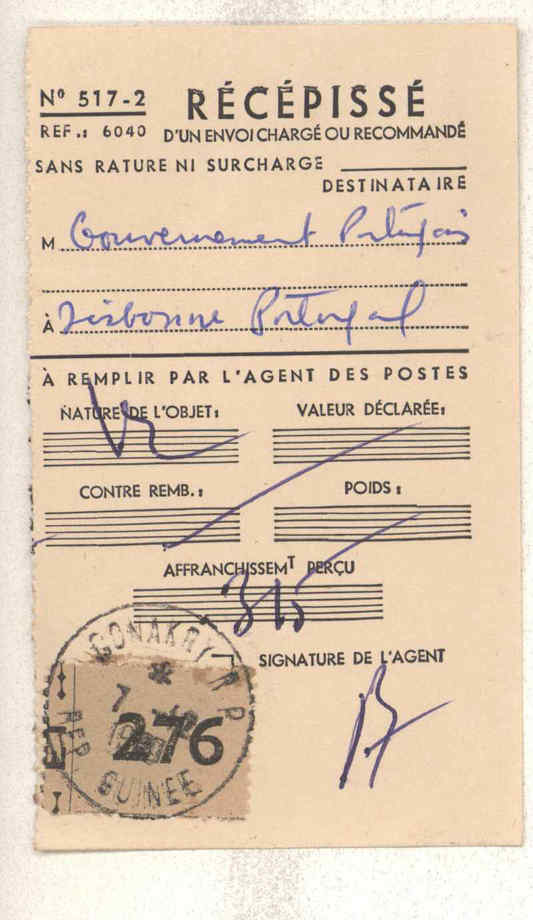 Nº 517-2 RÉCÉPISSÉ
REF.: 6040 D'UN ENVOI CHARGÉ OU RECOMMANDÉ
SANS RATURE NI SURCHARGE
DESTINATAIRE
M Gouvernement Portugais
À Lisbonne Portugal
À REMPLIR PAR L'AGENT DES POSTES
NATURE DE L'OBJET: VALEUR DÉCLARÉE:
CONTRE REMB.: POIDS:
AFFRANCHISSEMT PERÇU
315
SIGNATURE DE L'AGENT
CONAKRY R.P.
7
276
REP. GUINEE